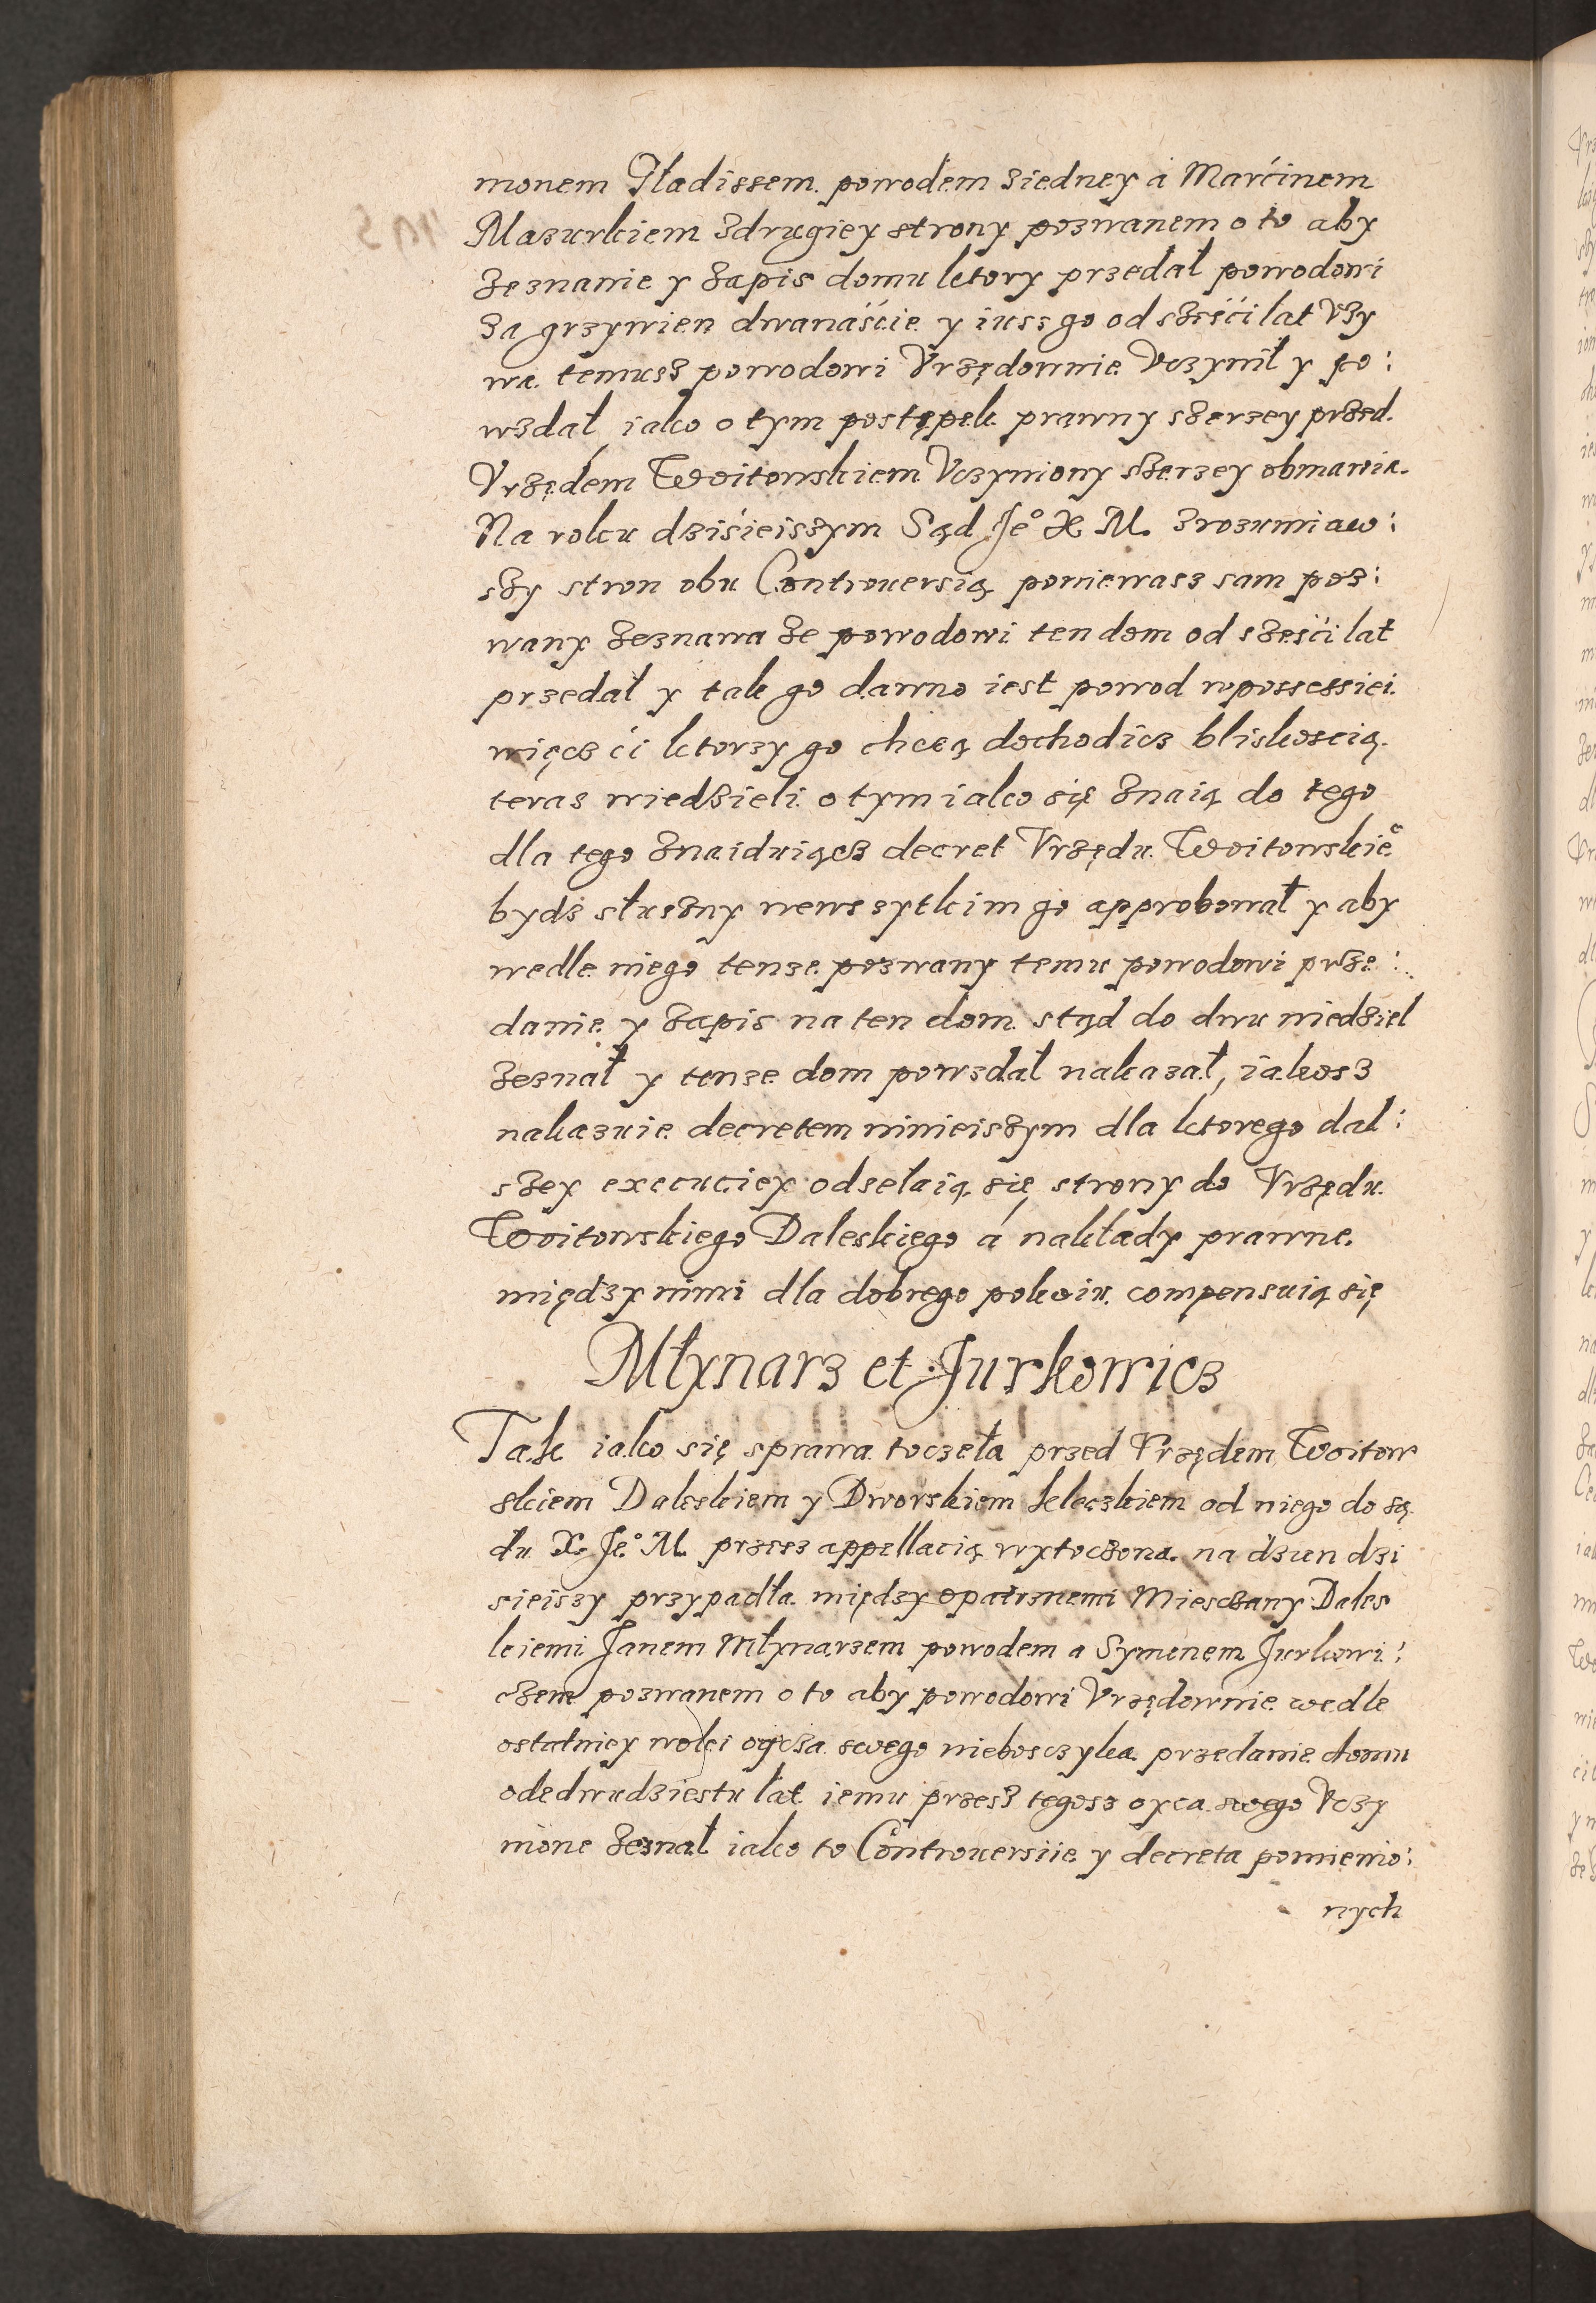 monem Gładissem powodem ziedney á Marćinem
Mazurkiem zdrugiey strony pozwanem o to aby
zeznanie y zapis domu ktory przedał powodowi
za grzywien dwanaśćie y iussgo od sześći lat Vzy
wa temusz powodowi Vrzędownie Vczynił y po:
wzdał, iako o tym postępek prawny szerzey przed
Vrzędem Woitowskiem Vczyniony szerzey obmawia.
Na roku dziśieiszym Sąd Je° X M. zrozumiaw:
szy stron obu Controuersią poniewasz sam poz:
wany zeznawa ze powodowi ten dom od sześći lat
przedał y tak go dawno iest powod wpossessiei
więcz ći ktorzy go chcą dochodicz bliskoscią
teras wiedzieli o tym iako się znaią do tego
dla tego znaiduiącz decret Vrzędu Woitowskie°
bydź słuszny wewssytkim go approbował y aby
wedle niego tenze pozwany temu powodowi prze:
danie y zapis na ten dom stąd do dwu niedziel
zeznał y tenze dom powzdał nakazał, iakosz
nakazuie decretem ninieiszym dla ktorego dal:
szey execuciey odsełaią się strony do Vrzędu
Woitowskiego Daleskiego á nakłady prawne
między nimi dla dobrego pokoiu compensuią się
Młynarz et Jurkowicz
Tak iako się sprawa toczeła przed Vrzędem Woitow
skiem Daleskiem y Dworskiem keleczkiem od niego do są
du X. Je° M. przesz appellacią wytoczona na dzien dzi
sieiszy przypadła między opatrznemi Miesczany Dales
kiemi Janem Młynarzem powodem a Symonem Jurkowi:
czem pozwanem o to aby powodowi Vrzędownie wedle
ostatniey wolei oycza swego nieboszczyka przedanie domu
odedwudziestu lat iemu przesz tegosz oyca swego Vczy
nione zeznał iako to Controuersiie y decreta pomienio:
nych